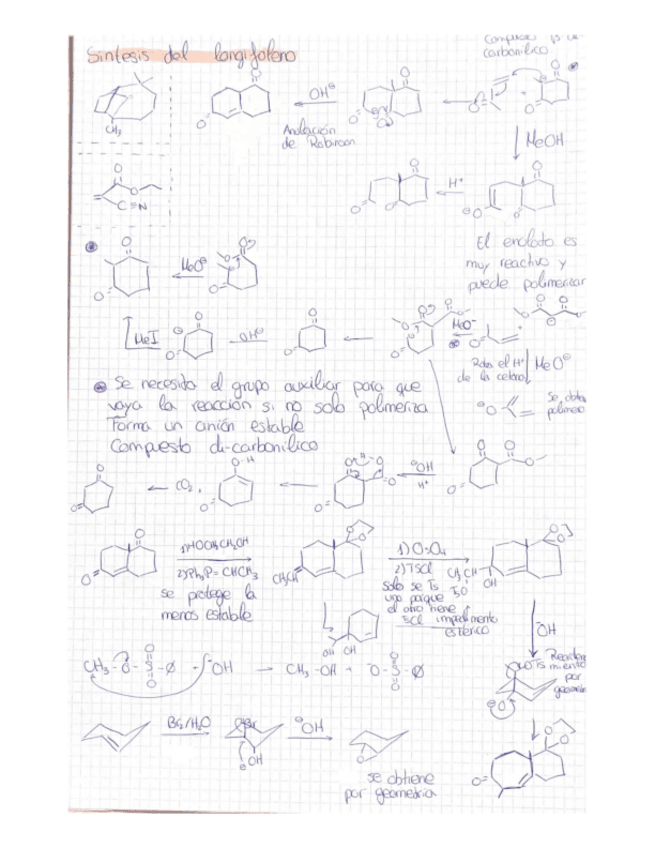 Síntesis del longifoleno
carbonílico
OH⊖
Anulación
de Robinson
MeOH
CH₃
H⁺
C≡N
El enolato es
muy reactivo y
puede polimerizar
MeO⊖
MeI
OH⊖
MeO⁻
Roba el H⁺
de la cetona
MeO⊖
Se necesita el grupo auxiliar para que
vaya la reacción si no solo polimeriza
Forma un anión estable
Compuesto di-carbonílico
CO₂
⊖OH
H⁺
1) HOCH₂CH₂OH
2) Ph₃P=CHCH₃
se protege la
menos estable
1) OsO₄
2) TSCl
solo se Ts
uno porque
el otro tiene
impedimento
estérico
OH
OH
⁻OH
CH₃-O-S-Ø + ⁻OH → CH₃-OH + ⁻O-S-Ø
por
Br₂/H₂O
⊖OH
OH
se obtiene
por geometría